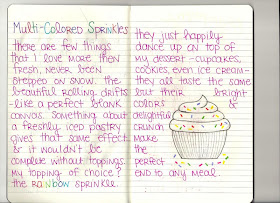 Multi-Colored Sprinkles
there are few things
that I love more then
fresh, never been
stepped on snow. the
beautiful rolling drifts
-like a perfect blank
canvas. Something about
a freshly iced pastry
gives that same effect
& it wouldn't be
complete without toppings.
My topping of choice?
the rainbow sprinkle.
they just happily
dance up on top of
my dessert -cupcakes,
cookies, even ice cream-
they all taste the same
but their bright
colors &
delightful
crunch
make
the
perfect
end to any meal.